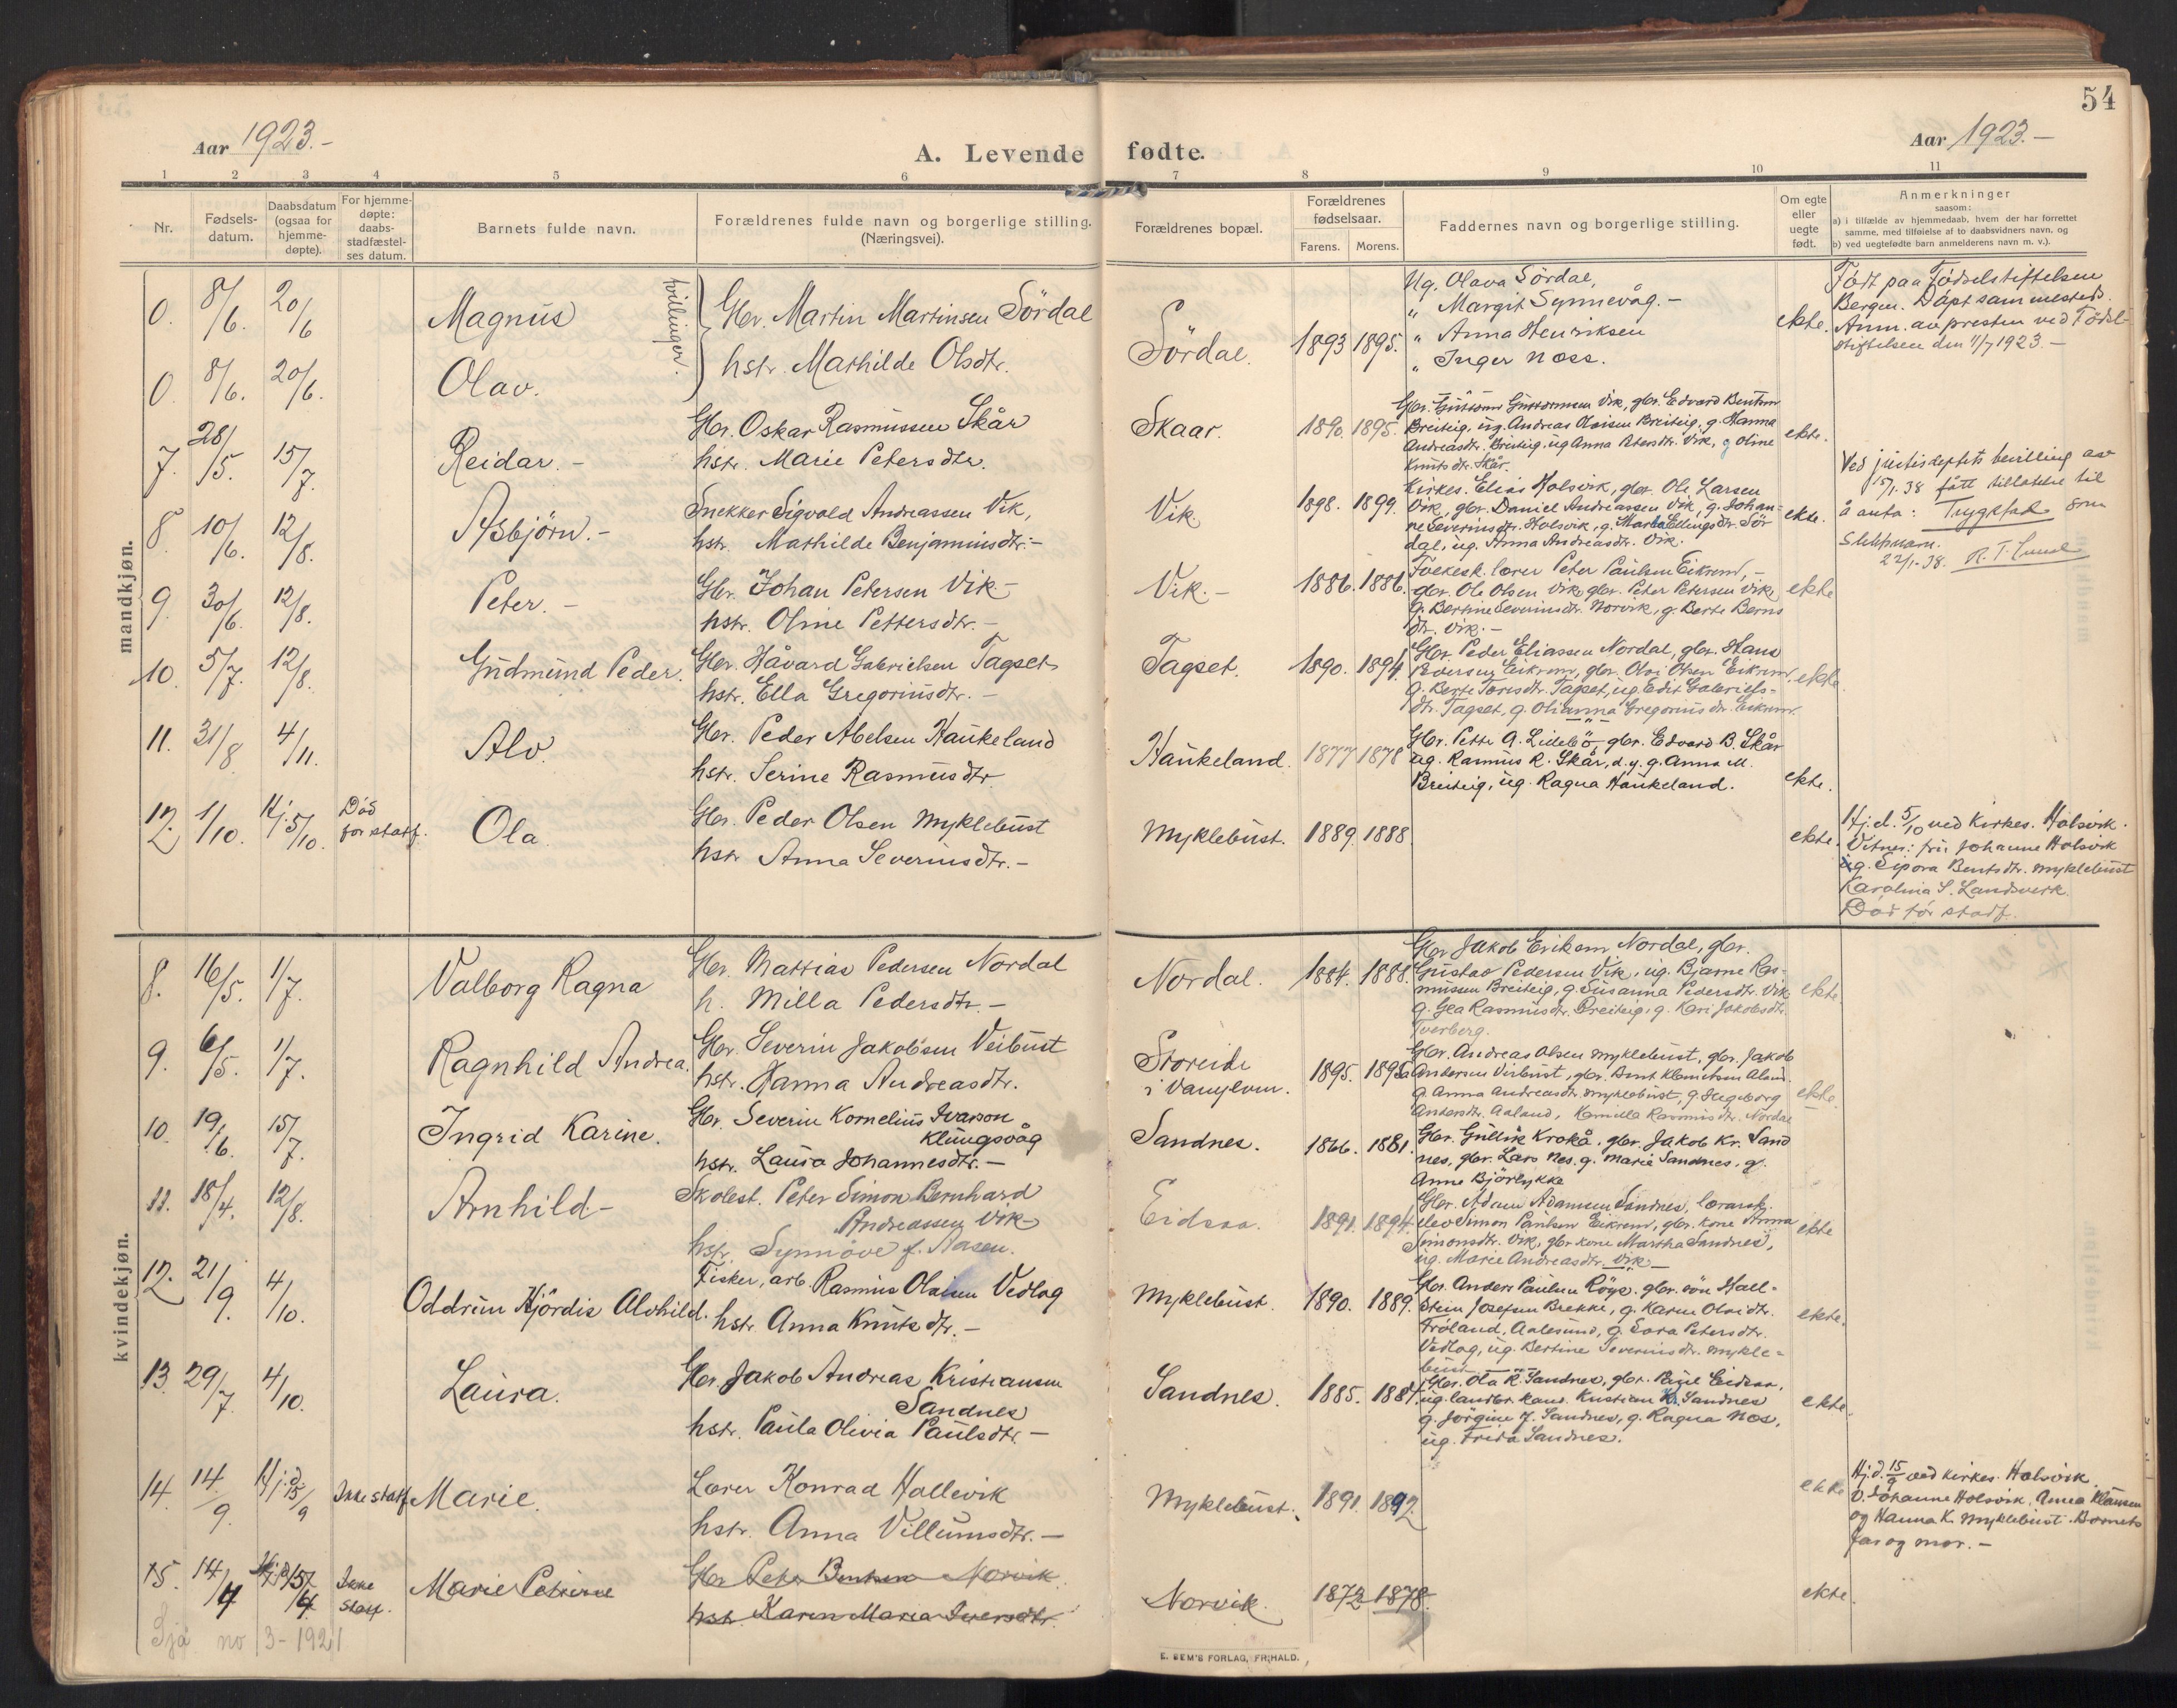 54
Aar 1923.-
A. Levende fødte.
Aar 1923.-
1 2 3 4 5 6 7 8 9 10 11
Nr.
Fødsels-
datum.
Daabsdatum
(ogsaa for
hjemme-
døpte).
For hjemme-
døpte:
daabs-
stadfæstel-
ses datum.
Barnets fulde navn.
Forældrenes fulde navn og borgerlige stilling.
(Næringsvei).
Forældrenes bopæl.
Forældrenes
fødselsaar.
Farens. Morens.
Faddernes navn og borgerlige stilling.
Om egte
eller
uegte
født.
Anmerkninger
saasom:
a) i tilfælde av hjemmedaab, hvem der har forrettet
samme, med tilføielse af to daabsvidners navn, og
b) ved uegtefødte barn anmelderens navn m. v.).
mandkjøn.
0. 8/6. 20/6 Magnus
tvillinger.
Gbr. Martin Martinsen Sördal
hstr. Mathilde Olsdtr.
0. 8/6. 20/6. Olav.
Sördal. 1893 1895.
Ug. Olava Sördal,
" Margit Synnevåg.-
" Anna Henriksen
" Inger Noss.
ekte.
Födt paa Födselstiftelsen
Bergen. Döpt sammesteds.
Anm. av presten ved Födsl-
stiftelsen den 11/7 1923.-
7. 28/5. 15/7. Reidar.-
Gbr. Oskar Rasmussen Skår
hstr. Marie Petersdtr.
Skaar. 1890. 1895.
Gbr. Guttorm Guttormsen Vik, gbr. Edvard Bentsen
Breiteig, ug. Andreas Olaisen Breiteig, g. Hanna
Andreasdtr. Breiteig, ug Anna Petersdtr. Vik, g Oline
Knutsdtr. Skår.
ekte.
8. 10/6. 12/8. Asbjörn.-
Snekker Sigvald Andreassen Vik,
hstr. Mathilde Benjaminsdtr.-
Vik 1898. 1899.
Kirkes. Elias Holsvik, gbr. Ole Larsen
Vik, gbr. Daniel Andreassen Vik, g. Johan-
ne Severinsdtr. Holsvik, g. Marta Ellingsdtr. Sör
dal, ug. Anna Andreasdtr. Vik.
ekte.
Ved justisdeptets bevilling av
15/1.38 fått tillatelse til
å anta: Trygstad som
slektsnavn.
22/1-38. R. T. Lund
9. 30/6. 12/8. Peter.-
Gbr. Johan Petersen Vik-
hstr. Oline Pettersdtr.-
Vik.- 1886. 1886.
Folkesk. lærer Peter Paulsen Eikrem,-
gbr. Ole Olsen Vik, gbr. Peter Petersen Vik,
g. Bertine Severinsdtr. Norvik, g. Berte Berns
dtr. Vik.-
ekte
10. 5/7. 12/8. Gudmund Peder.
Gbr. Håvard Gabrielsen Tagset
hstr. Ella Gregoriusdtr.-
Tagset. 1890. 1894.
Gbr. Peder Eliassen Nordal, gbr. Hans
Iversen Eikrem, gbr. Olai Olsen Eikrem,
g. Berte Toresdtr. Tagset, ug. Edit Gabriels-
dtr. Tagset, g. Olianna Gregoriusdtr. Eikrem.
ekte.
11. 31/8 4/11. Alv.
Gbr. Peder Abelsen Haukeland
hstr. Serine Rasmusdtr
Haukeland. 1877 1878
Gbr. Petter A. Lillebö, gbr. Edvard B. Skår
ug. Rasmus R. Skår, d.y. g. Anna M.
Breiteig, ug. Ragna Haukeland.
ekte.
12. 1/10. Hj. 5/10. Död
for stadf.
Ola
Gbr. Peder Olsen Myklebust
hstr Anna Severinsdtr.-
Myklebust. 1889. 1888
ekte.
Hj.d. 5/10 ved kirkes. Holsvik.
Vitner: fru Johanne Holsvik
ug. Sipora Bentsdtr. Myklebust
Karolina S. Landsverk.
Död för stadf.
kvindekjøn.
8. 16/5. 1/7. Valborg Ragna
Gbr. Mattias Pedersen Nordal
h. Milla Pedersdtr.-
Nordal. 1884. 1888.
Gbr Jakob Eriksen Nordal, gbr.
Gustav Pedersen Vik, ug. Bjarne Ras-
mussen Breiteig, g. Susanna Pedersdtr. Vik
g. Gea Rasmusdtr. Breiteig, g. Kari Jakobsdtr.
Tverberg.
ekte.
9. 6/5. 1/7. Ragnhild Andrea.
Gbr. Severin Jakobsen Veibust
hstr. Hanna Andreasdtr.
Storeide
i Vanylven. 1895. 1895
Gbr. Andreas Olsen Myklebust, gbr. Jakob
Andersen Veibust, gbr. Bernt Klemetsen Aland.
g. Anna Andreasdtr. Myklebust, g. Ingeborg
Andersdtr. Aaland, Kamilla Rasmusdtr. Nordal
ekte.
10. 19/6. 15/7. Ingrid Karine.
Gbr. Severin Kornelius Ivarson
Klungsvåg
hstr. Laura Johannesdtr.-
Sandnes. 1866. 1881.
Gbr. Gullik Krokå, gbr. Jakob Kr. Sand
nes, gbr. Lars Nes. g. Marie Sandnes, g.
Anne Björlykke
11. 18/4. 12/8. Arnhild-
Skolest. Peter Simon Bernhard
Andreassen Vik-
hstr. Synnöve f. Aasen.
Eidsaa. 1891. 1894.
Gbr. Adam Adamsen Sandnes, lærersk.
elev Simon Paulsen Eikrem, gbr. kone Anna
Simonsdtr. Vik, gbr kone Martha Sandnes,
ug. Marie Andreasdtr. Vik-
ekte
12. 21/9. 4/10. Oddrun Hjördis Alvhild.
Fisker, arb. Rasmus Olaisen Vedlog
hstr. Anna Knutsdtr.-
Myklebust. 1890. 1889.
Gbr. Anders Paulsen Röys. gbr. sön Hall-
stein Josefsen Brekke, g. Karen Olaidtr.
Fröland, Aalesund, g. Sara Petersdtr.
Vedlog, ug. Bertine Severinsdtr. Mykle-
bust
ekte.
13. 29/7. 4/10. Laura.
Gbr. Jakob Andreas Kristiansen
Sandnes
hstr. Paula Olivia Paulsdtr.-
Sandnes. 1885. 1884.
Gbr. Ola R. Sandnes, gbr. Eidsaa,
ug. landbr. kand. Kristian Kr. Sandnes
g. Jörgine J. Sandnes, g. Ragna Nos,
ug. Frida Sandnes.
ekte.
14. 14./9. Hj.d. 15/9 Ikke stadf
Marie.
Lærer Konrad Hallevik
hstr. Anna Villumsdtr.-
Myklebust. 1891. 1892.
ekte
Hj.d. 15/9 ved kirkes. Holsvik
v. Johanne Holsvik, Anna Klausen
og Hanna K. Myklebust. Barnets
far og mor.-
15. 14/4 Hj.d 15/4 Ikke
stadf.
Marie Petrine
Gbr Peter Bentsen Norvik.
hstr. Karen Maria Iversdtr.
Norvik. 1872 1878.
ekte.
Sjå no 3-1921
E. SEM'S FORLAG, FR.HALD.